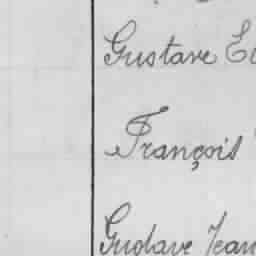 Gustave
François
Gustave Jean